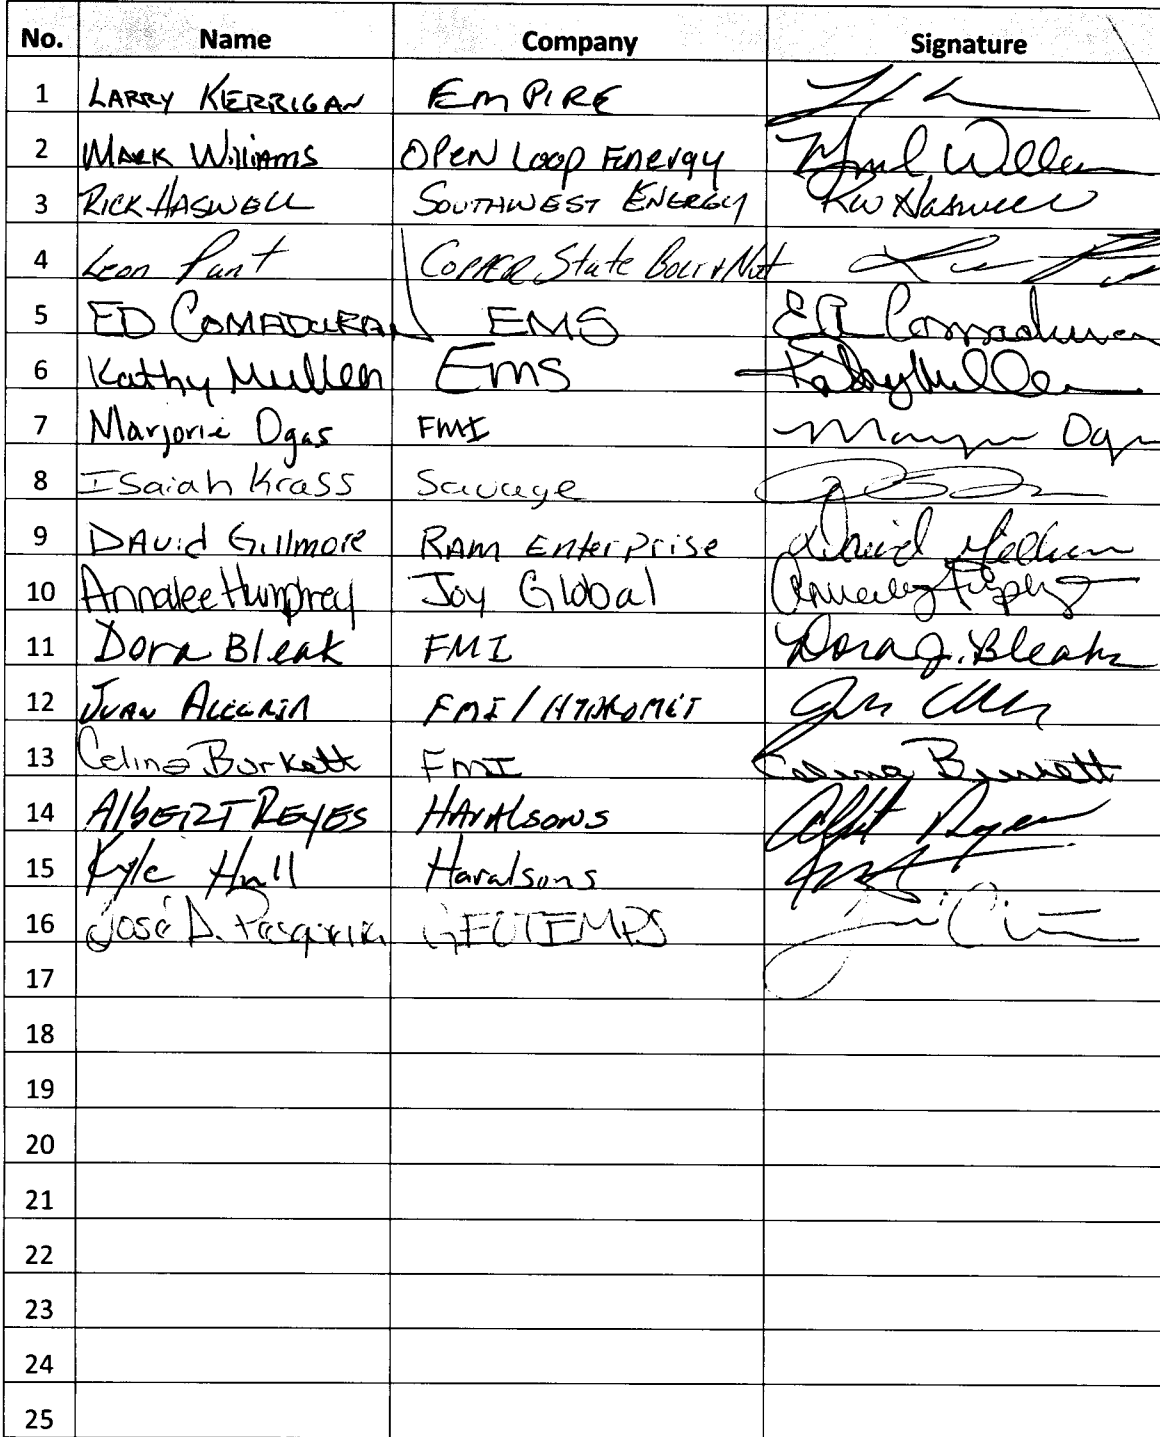 No. Name Company Signature
1 LARRY KERRIGAN EMPIRE
2 MARK Williams OPEN Loop Energy
3 RICK HASWELL SOUTHWEST ENERGY RW Haswell
4 Leon Copper State Bolt & Nut
5 ED COMADURAN EMS Ed Comaduran
6 Kathy Mullen EMS Kathy Mullen
7 Marjorie Ogas FMI
8 Isaiah Krass Savage
9 DAvid Gillmore RAM Enterprise David
10 Annalee Humphrey Joy Global
11 Dora Bleak FMI Dora J. Bleak
12 JUAN ALEGRIA FMI / HYDROMET
13 Celina Burkett FMI Celina Burkett
14 AlbERT REYES HArAlsons
15 Kyle Hull Haralsons
16 José D. GEOTEMPS
17
18
19
20
21
22
23
24
25